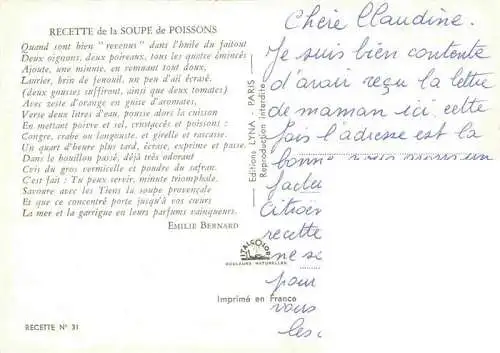 RECETTE de la SOUPE de POISSONS
Quand sont bien "revenus" dans l'huile du faitout
Deux oignons, deux poireaux, tous les quatre émincés
Ajoute, une minute, en remuant tout doux,
Laurier, brin de fenouil, un peu d'ail écrasé.
(deux gousses suffiront, ainsi que deux tomates)
Avec zeste d'orange en guise d'aromates,
Verse deux litres d'eau, pousse alors la cuisson
En mettant poivre et sel, crustacés et poissons :
Congre, crabe ou langouste, et girelle et rascasse.
Un quart d'heure plus tard, écrase, exprime et passe
Dans le bouillon passé, déjà très odorant
Cuis du gros vermicelle et poudre du safran.
C'est fait : Tu peux servir, minute triomphale.
Savoure avec les Tiens la soupe provençale
Et que ce concentré porte jusqu'à vos cœurs
La mer et la garrigue en leurs parfums vainqueurs.
EMILIE BERNARD
ITALCOLOR
COULEURS NATURELLES
Imprimé en France
RECETTE N° 31
Editions LYNA - PARIS
Reproduction interdite
Chère Claudine.
Je suis bien contente
d'avoir reçu la lettre
de maman ici cette
fois l'adresse est la
bonne
facteu
Citroën
recette
ne sa
pour
vous
les